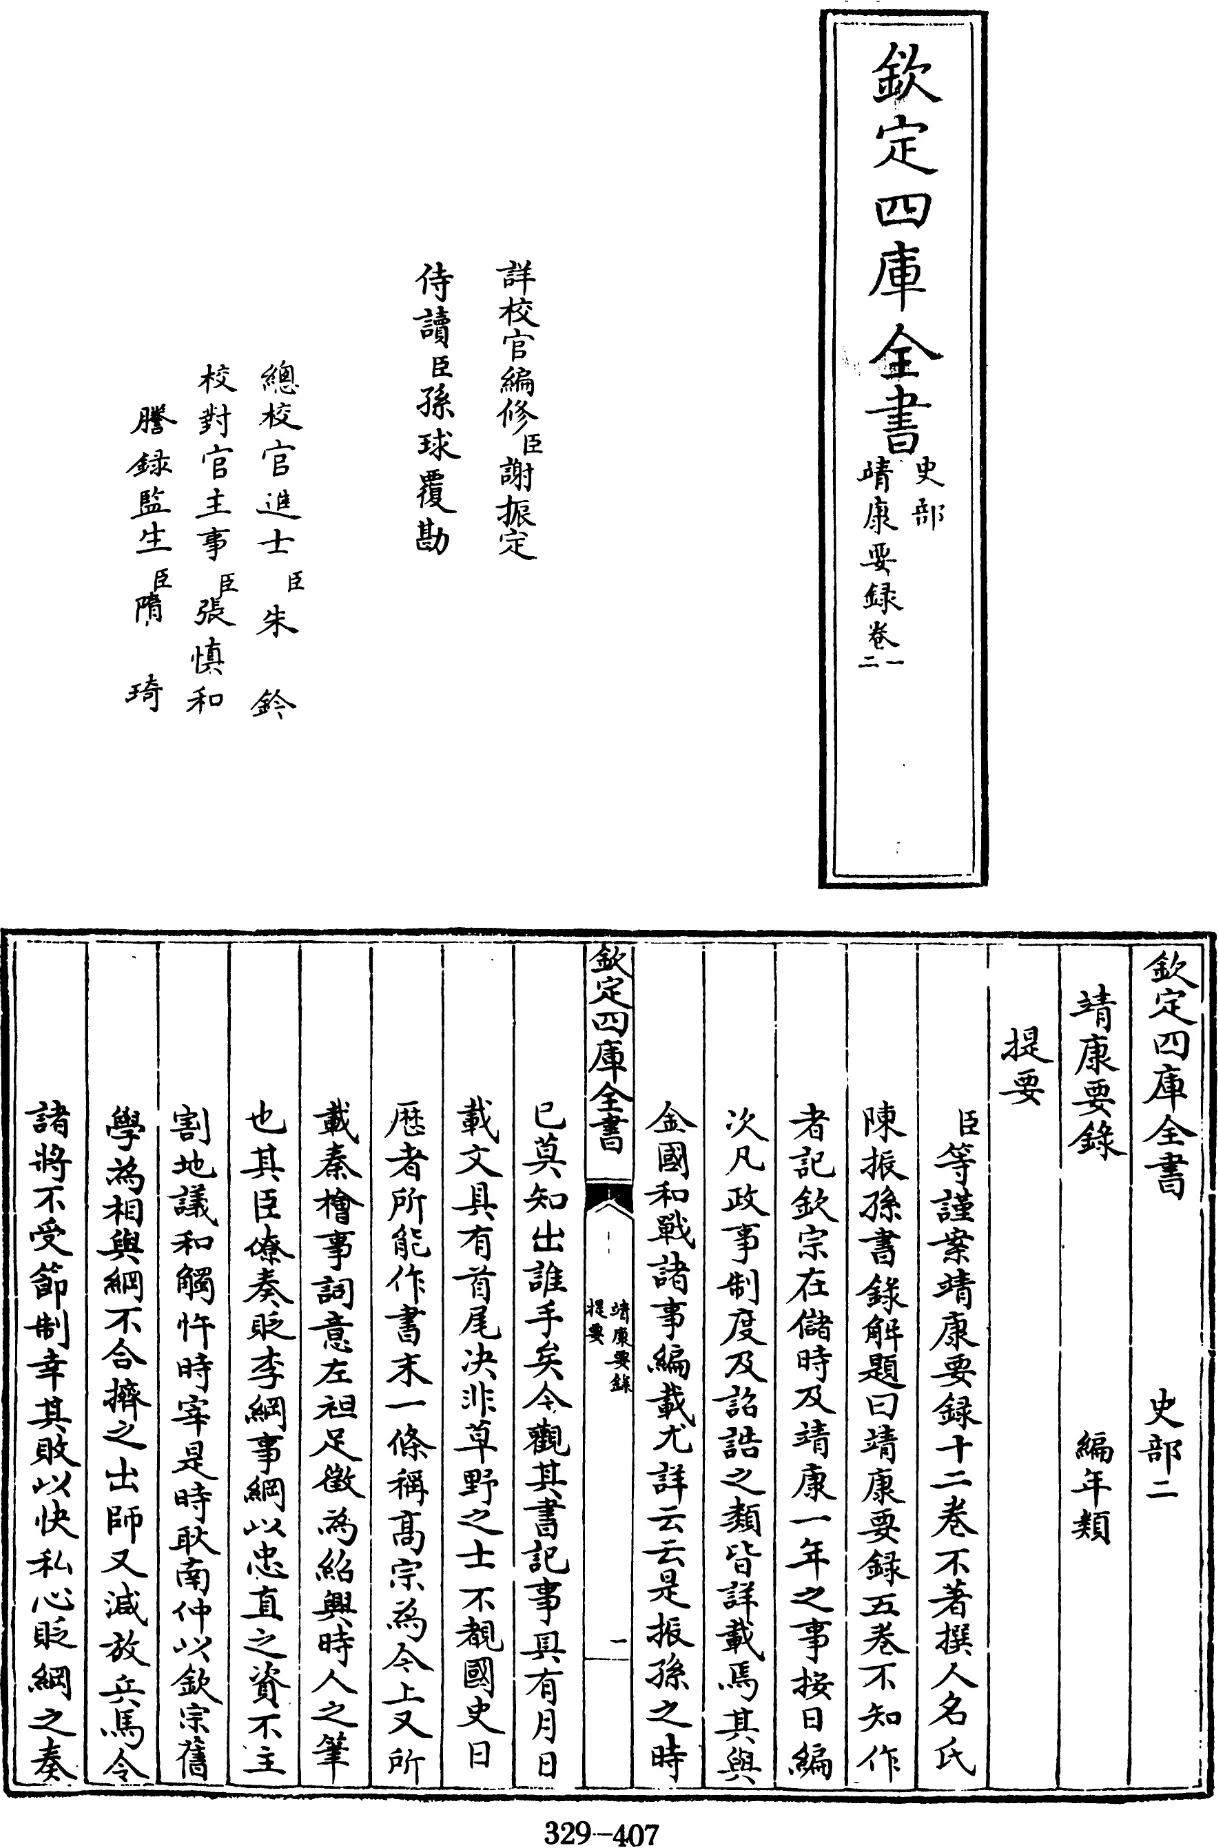 欽定四庫全書
史部
靖康要録卷一
二
詳校官編修臣謝振定
侍讀臣孫球覆勘
總校官進士臣朱鈐
校對官主事臣張慎和
謄録監生臣隋琦
欽定四庫全書 史部二
靖康要錄 編年類
提要
臣等謹案靖康要録十二卷不著撰人名氏
陳振孫書錄解題曰靖康要録五卷不知作
者記欽宗在儲時及靖康一年之事按日編
次凡政事制度及詔誥之類皆詳載焉其與
金國和戰諸事編載尤詳云云是振孫之時
欽定四庫全書
靖康要錄
提要
一
已莫知出誰手矣今觀其書記事具有月日
載文具有首尾決非草野之士不覩國史日
歴者所能作書末一條稱髙宗為今上又所
載秦檜事詞意左袒足徴為紹興時人之筆
也其臣僚奏貶李綱事綱以忠直之資不主
割地議和觸忤時宰是時耿南仲以欽宗舊
學為相與綱不合擠之出師又減放兵馬令
諸將不受節制幸其敗以快私心貶綱之奏
329-407